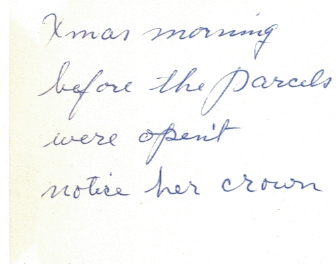 Xmas morning
before the parcels
were open't
notice her crown